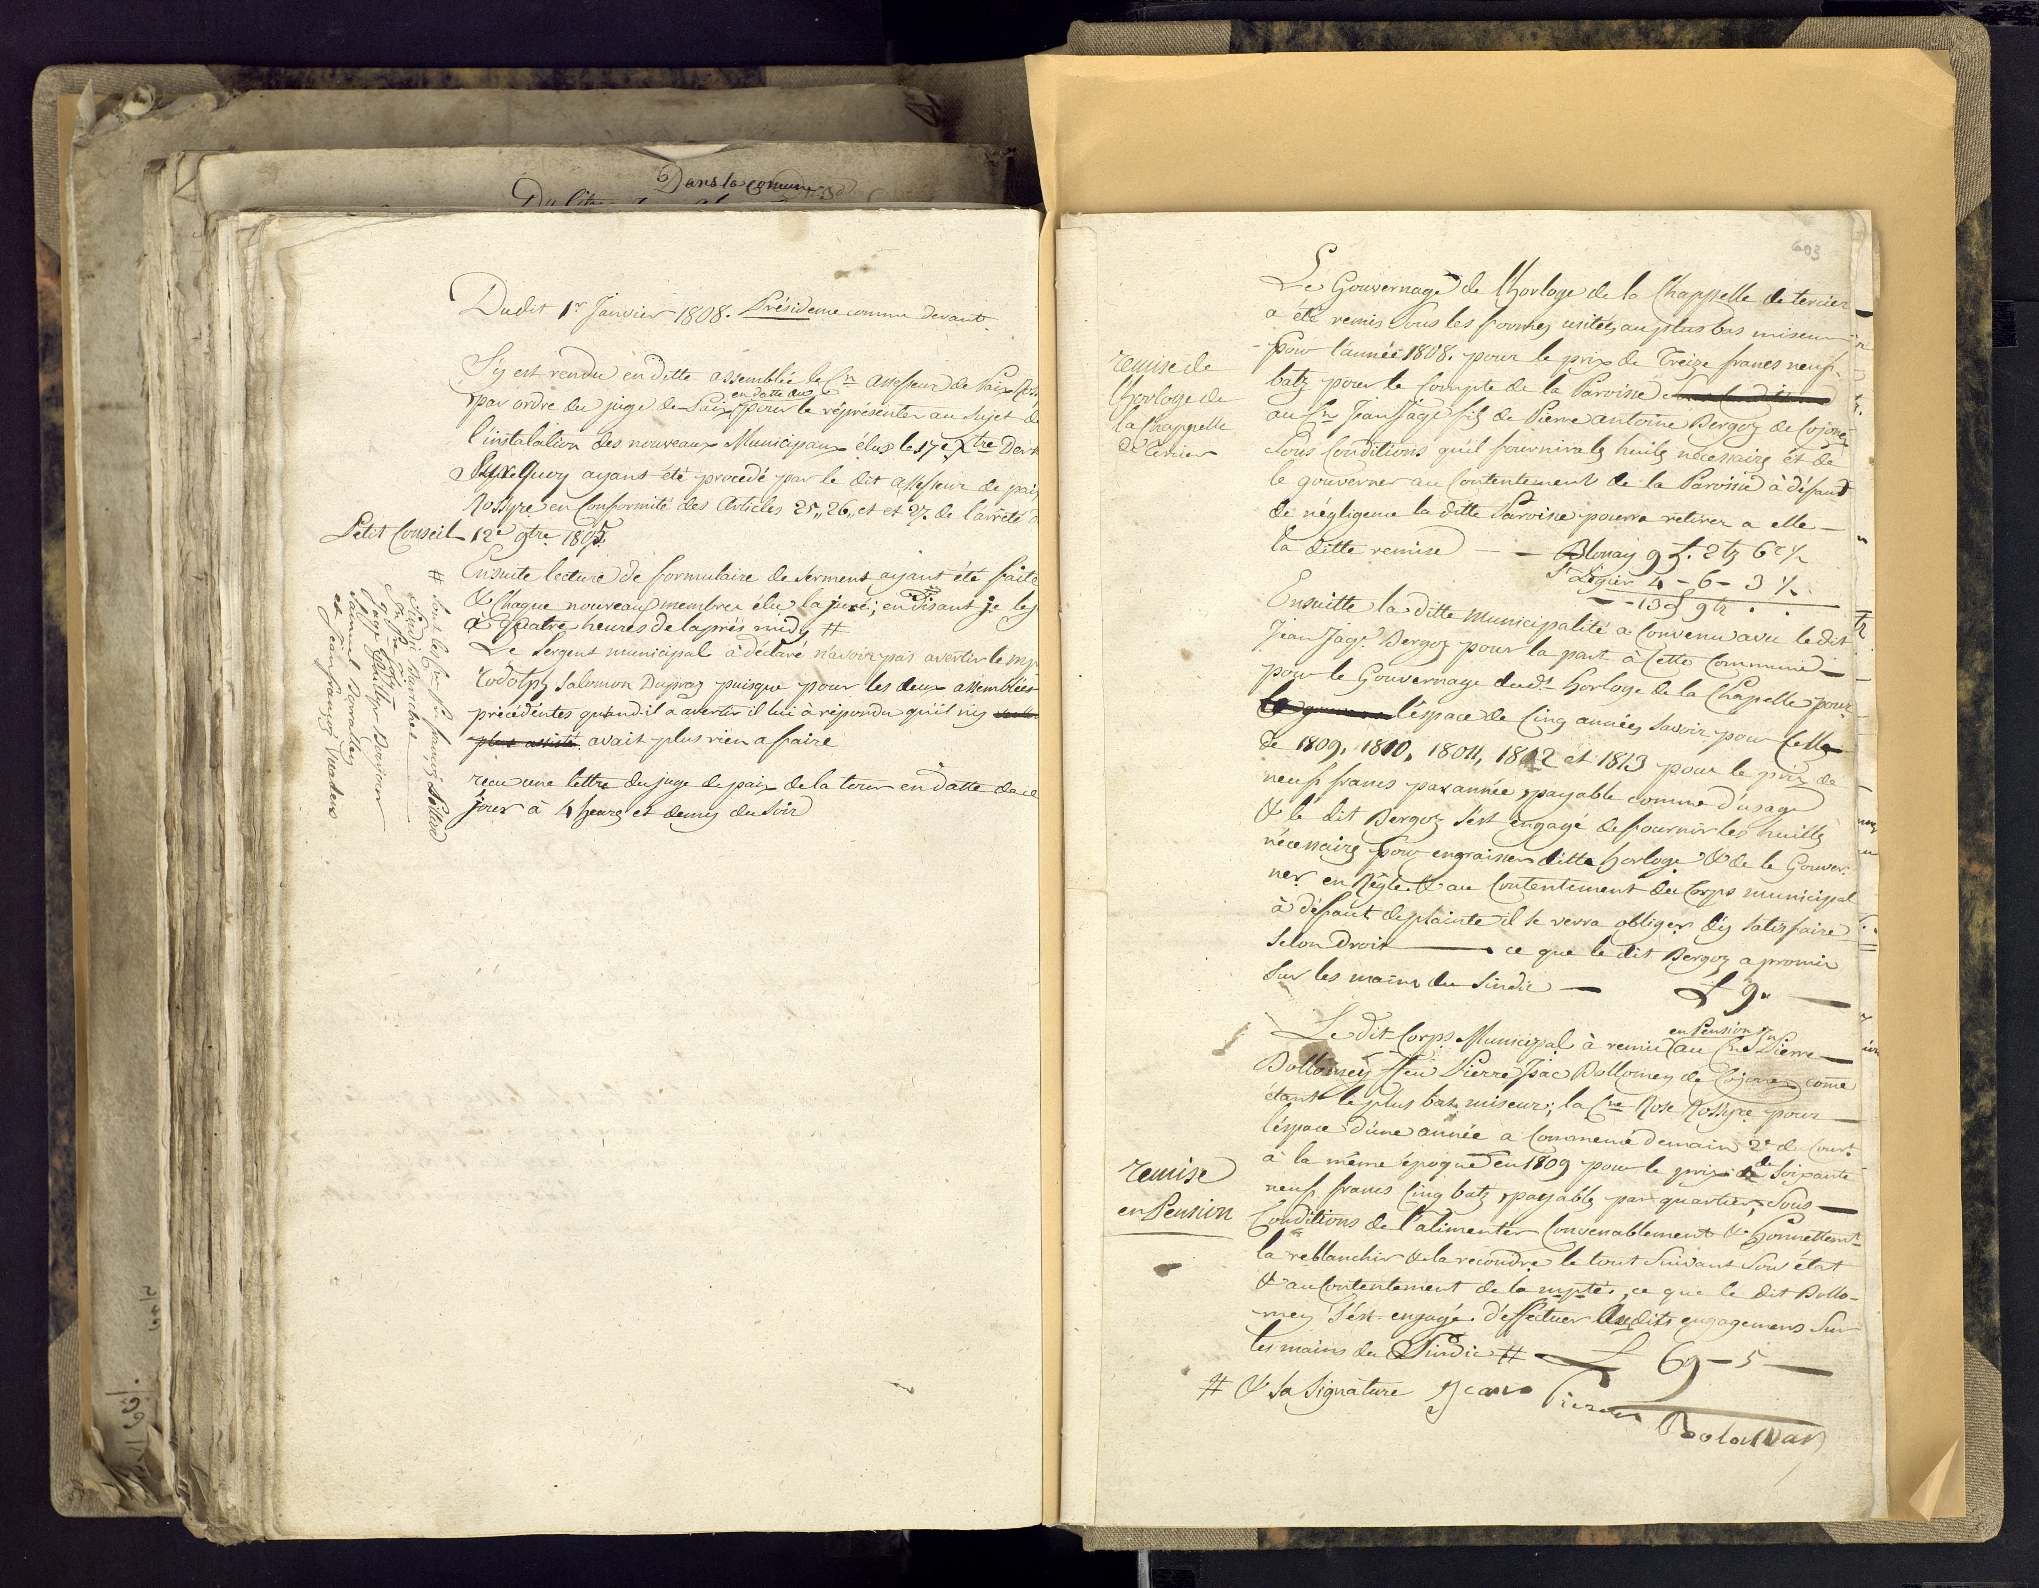 Dans la comune
Dudit 1r Janvier 1808. Présidence comme devant.
S'y est rendu en ditte assemblée le Cn assesseur de Paix
par ordre du juge de Paix en datte du pour le réprésenter au sujet de
l'instalation des nouveaux Municipaux élus le 17e Xbre
Sur Quoy ayant été procedé par le dit assesseur de paix
Rossyre en Conformité des Articles 25,, 26,, et et 27. de l'arrêté
Petit Conseil 12e 9bre 1805.
Ensuite lecture de formulaire de Serment ayant été faite
& Chaque nouveau membres élu la juré; en disant je le
à Quatre heures de laprés midy #
Le Sergent municipal à déclaré n'avoir pas avertir le
Rodolph Salomon Dupraz puisque pour les deux assemblées
précédentes quand il a avertir il lui à répondu qu'il n'y
plus assisté avait plus rien a faire
recu une lettre du juge de paix de la tour en datte de ce
jour à 4 heures et demy du Soir
# Sont les Cns
et Jean françois
603
Le Gouvernage de l'horloge de la Chappelle de tercier
a été remis Sous les formes usitées au plus bas miseur
pour l'année 1808. pour le prix de Treize francs neuf
batz pour le Compte de la Paroisse
au Cn Jean Jaqe fils de Pierre antoine Bergoz de Cojonex
Sous Conditions qu'il fournira les huiles nécessaires et de
le gouverner au Contentement de la Paroisse à défaut
de négligence la ditte Paroisse pourra retirer a elle
la ditte remise — Blonay 9 f. 2 bz 6 r ½
St Légier 4 - 6 - 3 ½
13 f 9 bz
remise de
l'horloge de
la Chappelle
de Tercier
Ensuitte la ditte Municipalité a Convenu avec le dit
Jean Jaqe Bergoz pour la part à Cette Commune
pour le Gouvernage dudt horloge de la Chapelle pour
l'éspace de Cinq années Savoir pour Celle
de 1809, 1810, 18011, 1812 et 1813 pour le prix de
neuf francs par année payable comme d'usage
& le dit Bergoz s'est engagé de fournir les huilles
nécessaires pour engraisser ditte horloge & de le Gouver-
ner en Règle & au Contentement du Corps municipal
à défaut de plainte il se verra obliger d'y satisfaire
Selon Droit — ce que le dit Bergoz a promis
Sur les mains du Sindic — £ 9.
Le dit Corps Municipal à remis en Pension au Cn Jn Pierre
Bollomey feu Pierre Isac Bollomey de Cojonex come
étant le plus bas miseur; la Cne Rose Rossyre pour
l'éspace d'une année a Commencé demain 2e du Court
à la même époque en 1809 pour le prix de Soixante
neuf francs Cinq batz payable par quartier, Sous
Conditions de l'alimenter Convenablement & Honnettemt
la reblanchir & la recoudre le tout Suivant Son état
& au Contentement de la mpté, ce que le dit Bollo-
mey s'est engagé d'éffectuer Lesdits engagemens Sur
les mains du Sindic # — £ 69 - 5 —
remise
en Pension
# & Sa Signature Jean Pierre